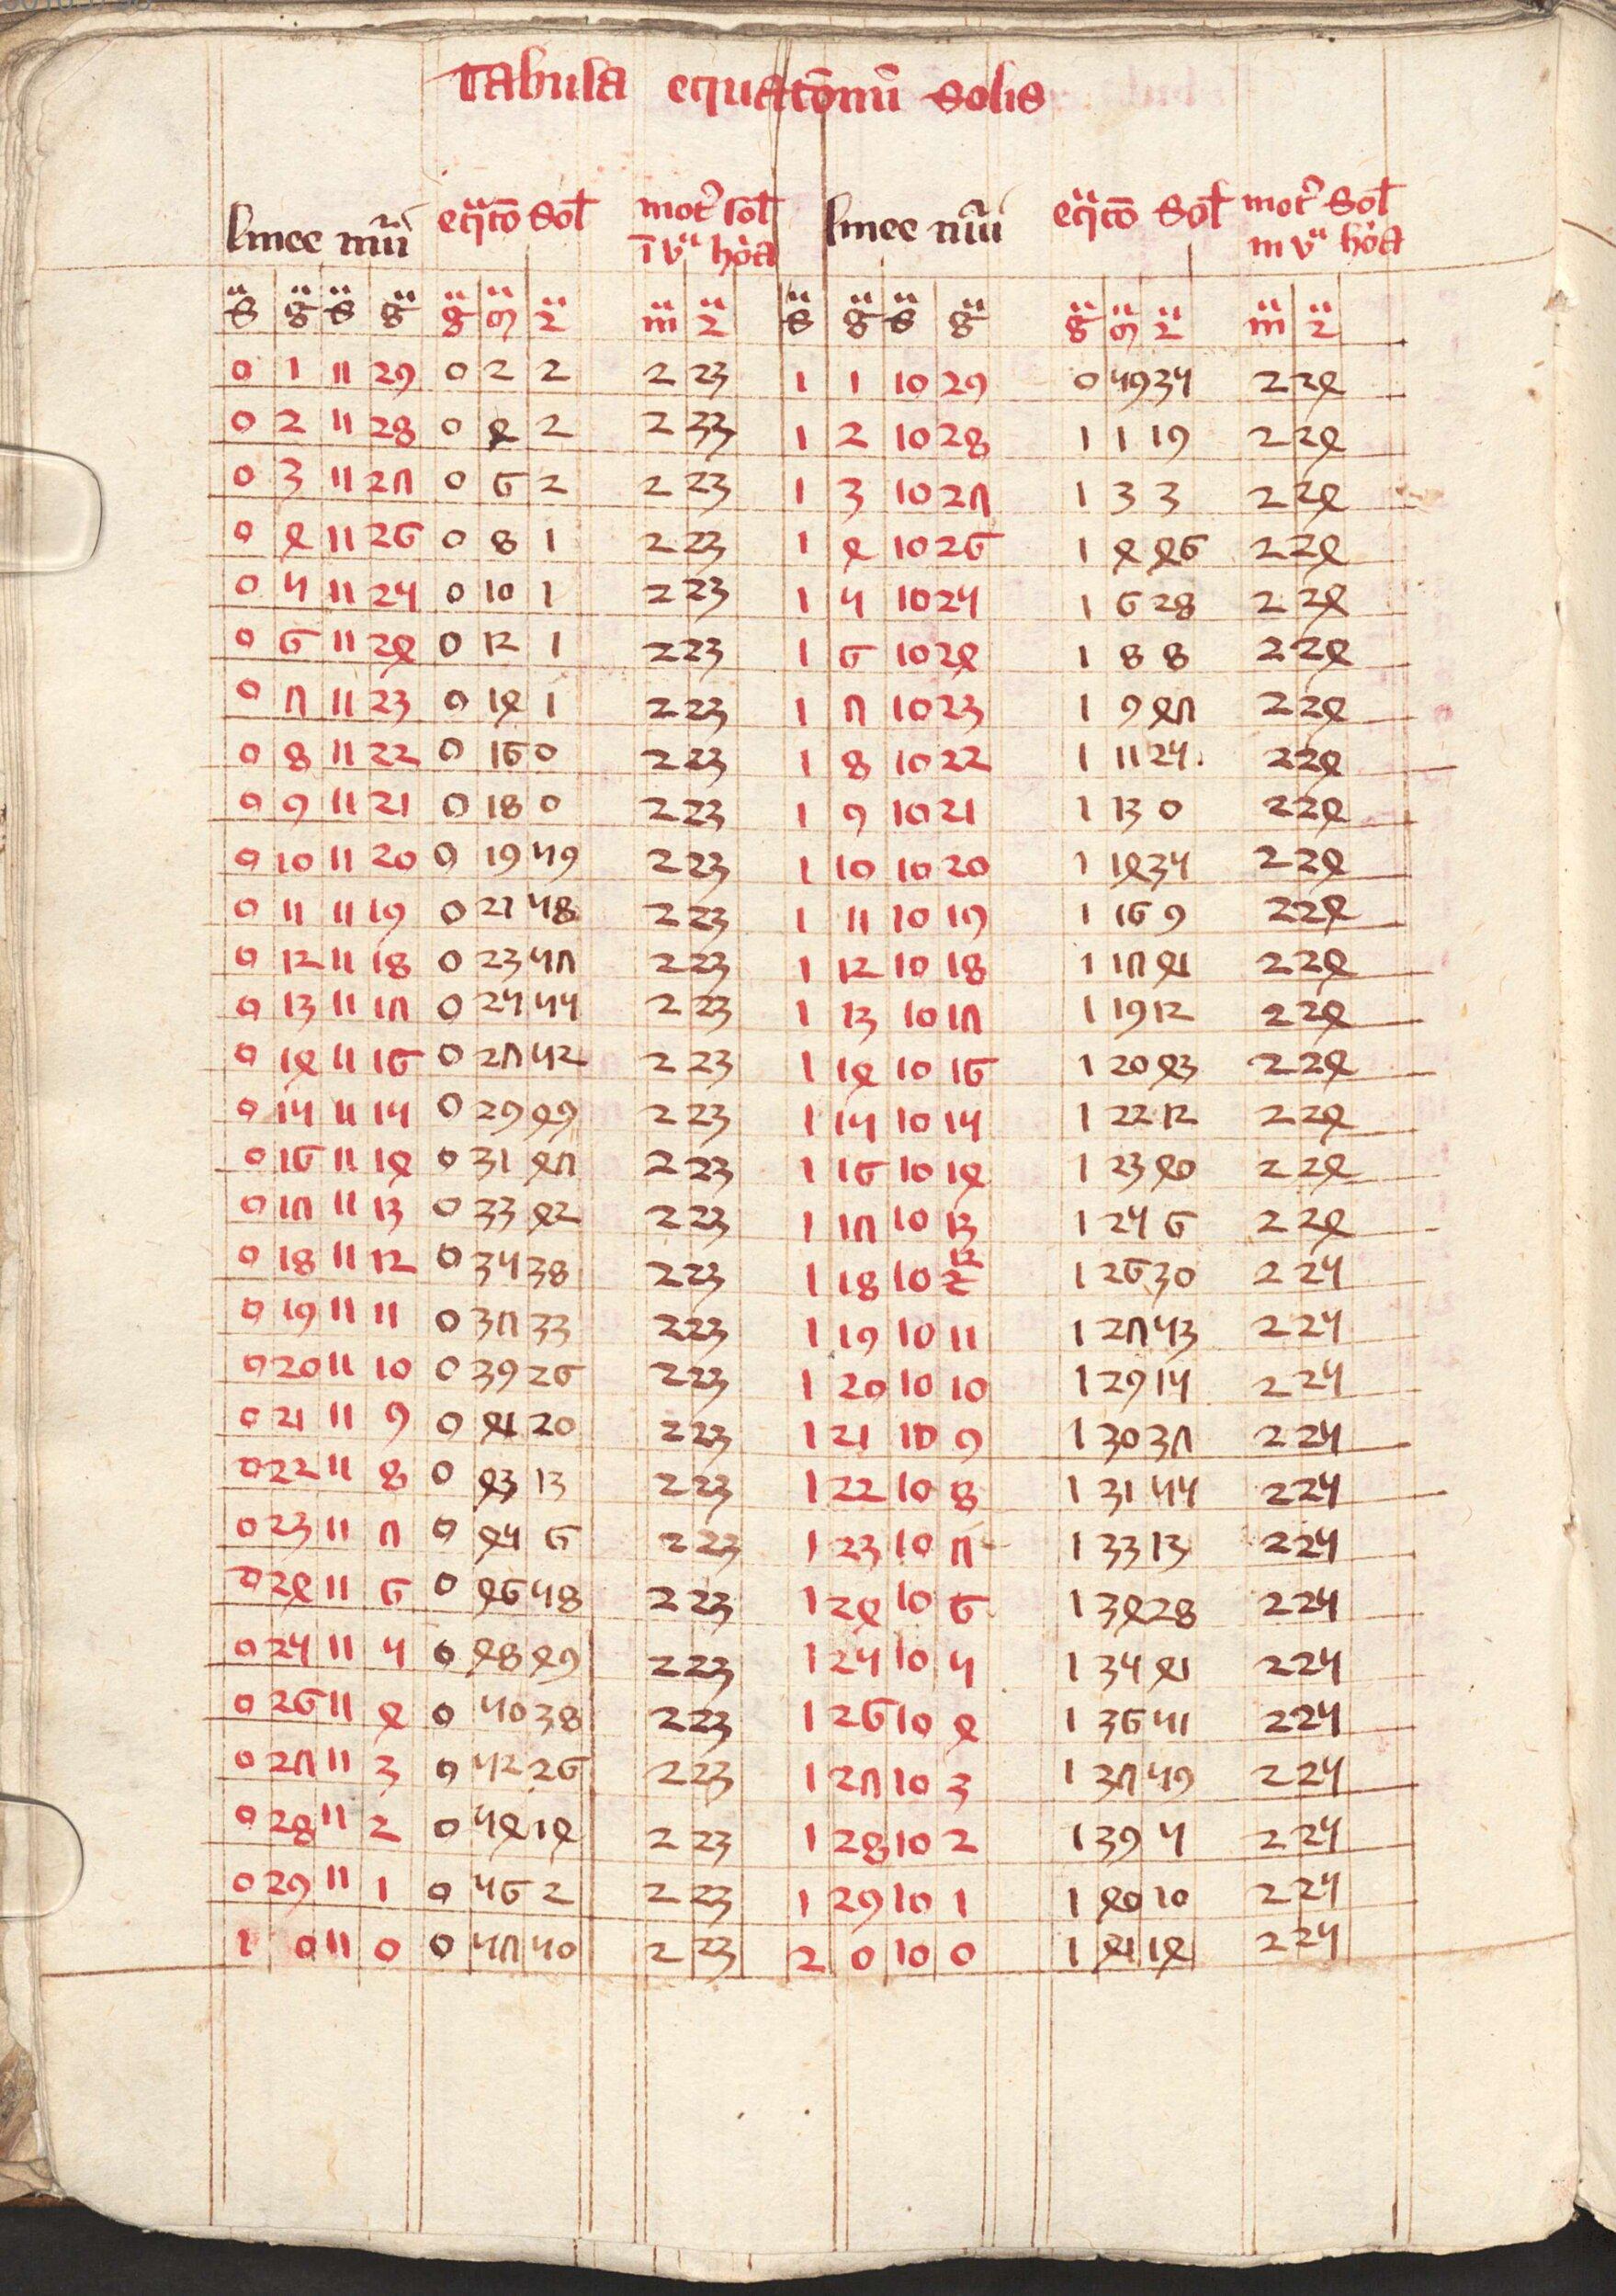 Tabula equatōnū Solis
linee nūi eqᵃtō Sol motꝰ sol ī vᵃ hōra linee nūi eqᵃtō Sol motꝰ Sol in vᵃ hōra
s g s g g m 2 m 2 s g s g g m 2 m 2
0 1 11 29 0 2 2 2 23 1 1 10 29 0 59 35 2 24
0 2 11 28 0 4 2 2 23 1 2 10 28 1 1 19 2 24
0 3 11 27 0 6 2 2 23 1 3 10 27 1 3 3 2 24
0 4 11 26 0 8 1 2 23 1 4 10 26 1 4 46 2 24
0 5 11 25 0 10 1 2 23 1 5 10 25 1 6 28 2 24
0 6 11 24 0 12 1 2 23 1 6 10 24 1 8 8 2 24
0 7 11 23 0 14 1 2 23 1 7 10 23 1 9 47 2 24
0 8 11 22 0 16 0 2 23 1 8 10 22 1 11 25. 2 24
0 9 11 21 0 18 0 2 23 1 9 10 21 1 13 0 2 24
0 10 11 20 0 19 59 2 23 1 10 10 20 1 14 35 2 24
0 11 11 19 0 21 58 2 23 1 11 10 19 1 16 9 2 24
0 12 11 18 0 23 57 2 23 1 12 10 18 1 17 41 2 24
0 13 11 17 0 25 55 2 23 1 13 10 17 1 19 12 2 24
0 14 11 16 0 27 52 2 23 1 14 10 16 1 20 43 2 24
0 15 11 15 0 29 49 2 23 1 15 10 15 1 22 12 2 24
0 16 11 14 0 31 47 2 23 1 16 10 14 1 23 40 2 24
0 17 11 13 0 33 42 2 23 1 17 10 13 1 25 6 2 24
0 18 11 12 0 35 38 2 23 1 18 10 12 1 26 30 2 25
0 19 11 11 0 37 33 2 23 1 19 10 11 1 27 53 2 25
0 20 11 10 0 39 26 2 23 1 20 10 10 1 29 15 2 25
0 21 11 9 0 41 20 2 23 1 21 10 9 1 30 37 2 25
0 22 11 8 0 43 13 2 23 1 22 10 8 1 31 55 2 25
0 23 11 7 0 45 6 2 23 1 23 10 7 1 33 13 2 25
0 24 11 6 0 46 58 2 23 1 24 10 6 1 34 28 2 25
0 25 11 5 0 48 49 2 23 1 25 10 5 1 35 41 2 25
0 26 11 4 0 50 38 2 23 1 26 10 4 1 36 51 2 25
0 27 11 3 0 52 26 2 23 1 27 10 3 1 37 59 2 25
0 28 11 2 0 54 14 2 23 1 28 10 2 1 39 5 2 25
0 29 11 1 0 56 2 2 23 1 29 10 1 1 40 10 2 25
1 0 11 0 0 57 50 2 23 2 0 10 0 1 41 14 2 25